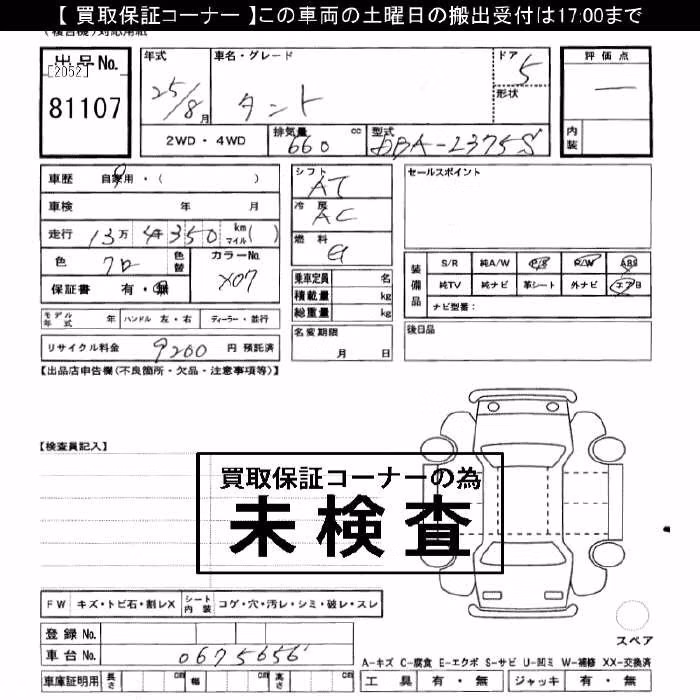 【 買取保証コーナー 】この車両の土曜日の搬出受付は17:00まで
出品No.
[2052]
81107
年式
25/8
月
車名・グレード
タント
ドア
5
形状
評価点
―
内装
2WD・4WD
排気量
660
cc
型式
DBA-L375S
車歴 自家用・( )
車検 年 月
走行 13万 4千350 km マイル( )
色 クロ 色替 カラーNo. X07
保証書 有・無
モデル年式 年 ハンドル 左・右 ディーラー・並行
リサイクル料金 9200 円 預託済
シフト
AT
冷房
AC
燃料
乗車定員 名
積載量 kg
総重量 kg
名変期限
月 日
セールスポイント
装備品
S/R 純A/W P/S P/W ABS
純TV 純ナビ 革シート 外ナビ エアB
ナビ型番:
後日品
【出品店申告欄(不良箇所・欠品・注意事項等)】
【検査員記入】
買取保証コーナーの為
未検査
FW キズ・トビ石・割レX シート内装 コゲ・穴・汚レ・シミ・破レ・スレ
登録No.
車台No. 0675656
車庫証明用 長さ cm 幅 cm 高さ cm
スペア
A-キズ C-腐食 E-エクボ S-サビ U-凹ミ W-補修 XX-交換済
工具 有・無 ジャッキ 有・無